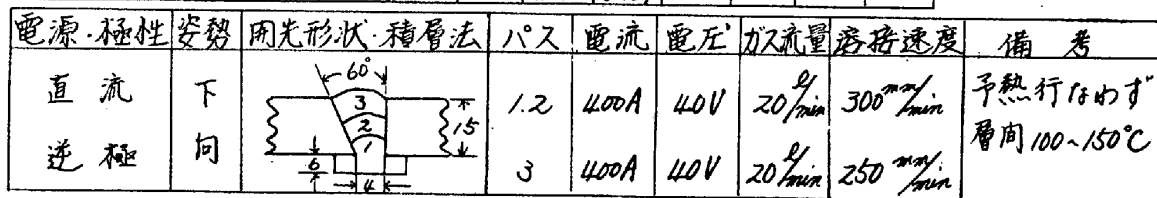 電源・極性 姿勢 開先形状・積層法 パス 電流 電圧 ガス流量 溶接速度 備考
直流 下 60° 3 2 1 15 1.2 400A 40V 20 l/min 300 mm/min 予熱行なわず
層間100~150℃
逆極 向 6 4 3 400A 40V 20 l/min 250 mm/min